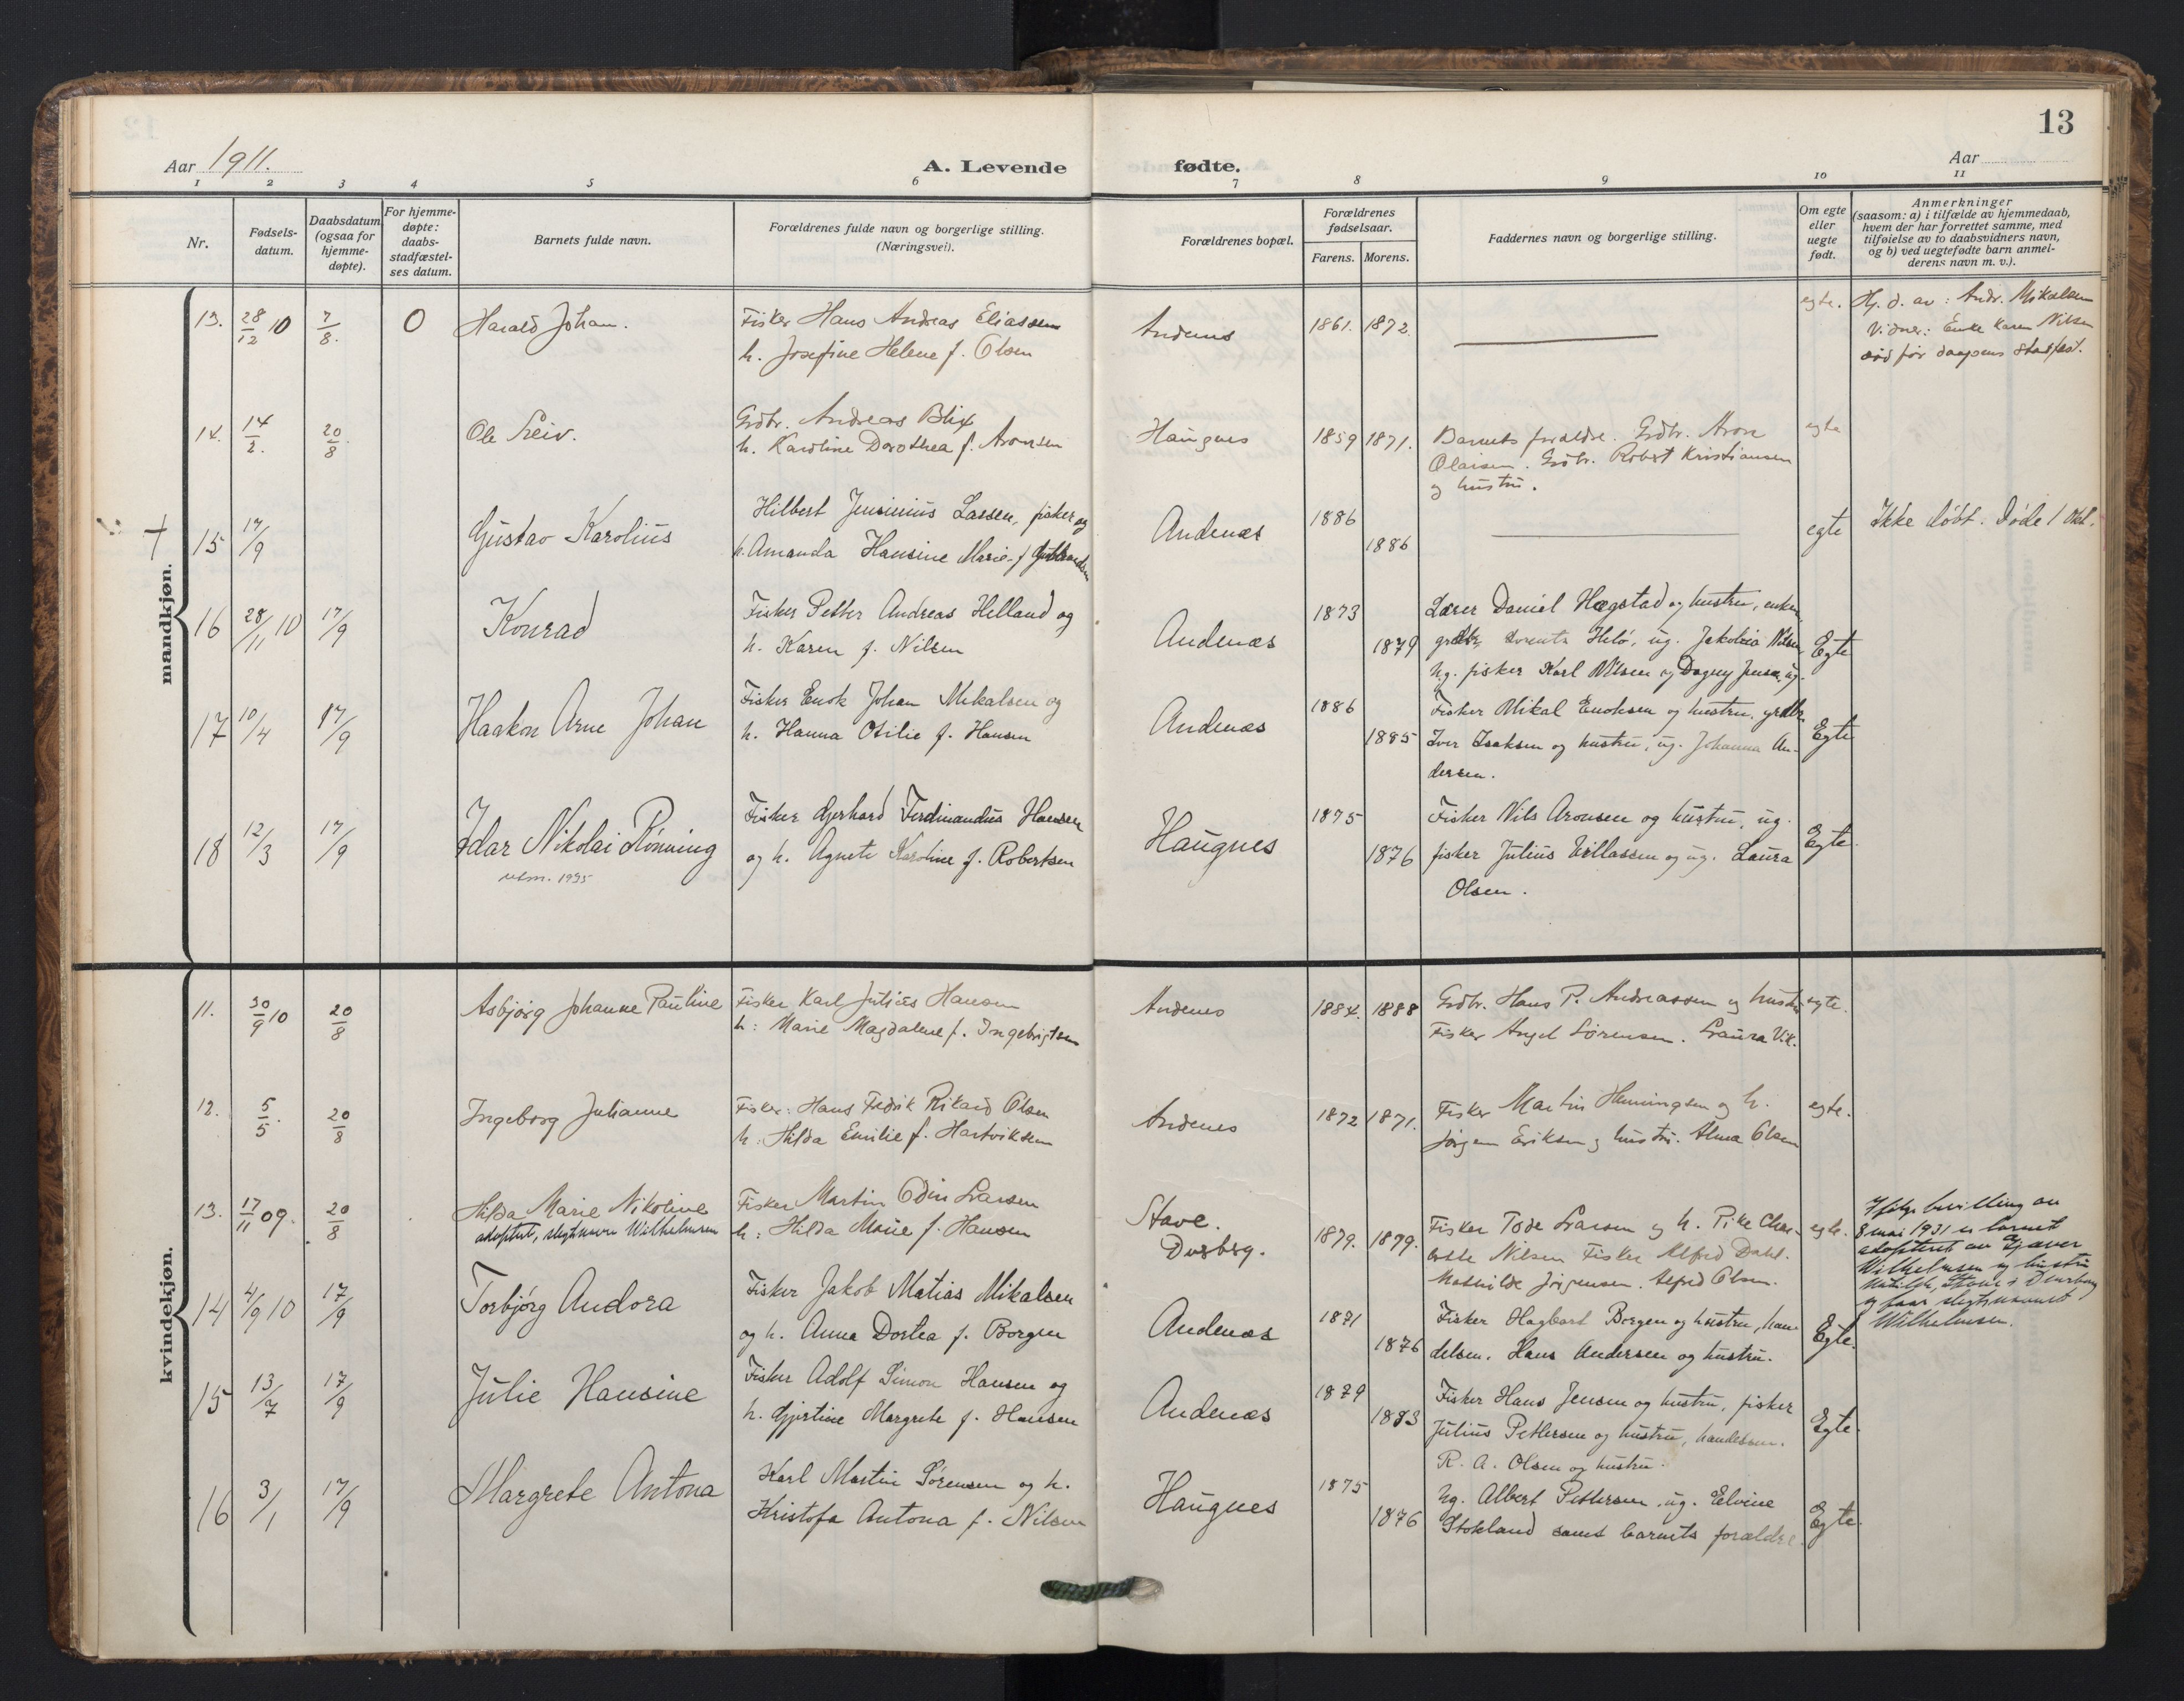 13
Aar 1911.
A. Levende fødte.
Aar
1 2 3 4 5 6 7 8 9 10 11
Nr.
Fødsels-
datum.
Daabsdatum
(ogsaa for
hjemme-
døpte).
For hjemme-
døpte:
daabs-
stadfæstel-
ses datum.
Barnets fulde navn.
Forældrenes fulde navn og borgerlige stilling.
(Næringsvei).
Forældrenes bopæl.
Forældrenes
fødselsaar.
Farens. Morens.
Faddernes navn og borgerlige stilling.
Om egte
eller
uegte
født.
Anmerkninger
(saasom: a) i tilfælde av hjemmedaab,
hvem der har forrettet samme, med
tilføielse av to daabsvidners navn,
og b) ved uegtefødte barn anmel-
derens navn m. v.).
mandkjøn.
13. 28/12 10 7/8. O Harald Johan.
Fisker Hans Andreas Eliassen
h. Josefine Helene f. Olsen
Andenes 1861. 1872. egte.
Hj. d. av: Andr. Mikalsen
Vidner: Enke Karen Nilsen
død før daapens stadfæst.
14. 14/2. 20/8. Ole Leiv.
Grdbr. Andreas Blix
h. Karoline Dorothea f. Aronsen
Haugnes 1859 1871.
Barnets forældre. Grdbr. Aron
Olaisen. Grdbr. Robert Kristiansen
og hustru.
egte
+ 15 17/9 Gustav Karolius
Hilbert Jensinius Larsen, fisker og
h. Amanda Hansine Marie f.
Andenæs 1886 1886 egte
Ikke døbt. Døde 1 Okt.
16 28/11 10 17/9 Konrad
Fisker Petter Andreas Helland og
h. Karen f. Nilsen
Andenæs 1873 1879
Lærer Daniel Hægstad og hustru, enkem.
grdbr. Lorents Helø, ug. Jakobia Nilsen,
Ng. fisker Karl Nilsen og Dagny Jensen, ug.
Egte
17 10/4 17/9 Haakon Arne Johan
Fisker Enok Johan Mikalsen og
h. Hanna Otilie f. Hansen
Andenæs 1886 1885
Fisker Mikal Enoksen og hustru, grdbr.
Iver Isaksen og hustru, ug. Johanna An-
dersen.
Egte
18 12/3 17/9 Idar Nikolai Rønning
utm. 1935
Fisker Gerhard Ferdinandius Hansen
og h. Agnete Karoline f. Robertsen
Haugnes 1875 1876
Fisker Nils Aronsen og hustru, ug.
fisker Julius Villassen og ug. Laura
Olsen.
Egte.
kvindekjøn.
11. 30/9 10 20/8 Asbjørg Johanne Pauline
Fisker Karl Julius Hansen
h: Marie Magdalene f. Ingebrigtsen
Andenes 1884. 1888
Grdbr. Hans P. Andreassen og hustru
Fisker Angel Sørensen. Laura Vik.
egte.
12. 5/5. 20/8 Ingeborg Julianne
Fisker: Hans Fedrik Rikard Olsen
h: Hilda Emilie f. Hartviksen
Andenes 1872 1871.
Fisker Martin Henningsen og h.
Jørgen Eriksen og hustru. Alma Olsen
egte.
13. 17/11 09. 20/8 Hilda Marie Nikoline
adoptert, slegtsnavn Wilhelmsen
Fisker Martin Odin Larsen
h: Hilda Marie f. Hansen
Stave.
Dverberg.
1879. 1879.
Fisker Tode Larsen og h. Pike Char-
lotte Nilsen Fisker Alfred Dahl.
Mathilde Jørgensen. Alfred Olsen.
egte.
Ifølge bevilling av
8 mai 1931 er barnet
adopteret av Gjæver
Wilhelmsen og hustru
Stave i Dverberg
og faar slegtsnavnet
Wilhelmsen.
14 4/9 10 17/9 Torbjørg Andora
Fisker Jakob Matias Mikalsen
og h. Anna Dortea f. Borgen
Andenæs 1871 1876
Fisker Hagbart Borgen og hustru, han-
delsm. Hans Andersen og hustru.
Egte.
15 13/7 17/9 Julie Hansine
Fisker Adolf Simon Hansen og
h. Gjertine Margrete f. Hansen
Andenæs 1879 1883
Fisker Hans Jensen og hustru, fisker
Julius Pettersen og hustru, handelsm.
R. A. Olsen og hustru.
Egte.
16 3/1 17/9 Margrete Antona
Karl Martin Sørensen og h.
Kristofa Antona f. Nilsen
Haugnes 1875 1876
Ng. Albert Pettersen, ug. Elvine
Stokland samt barnets forældre.
Egte.